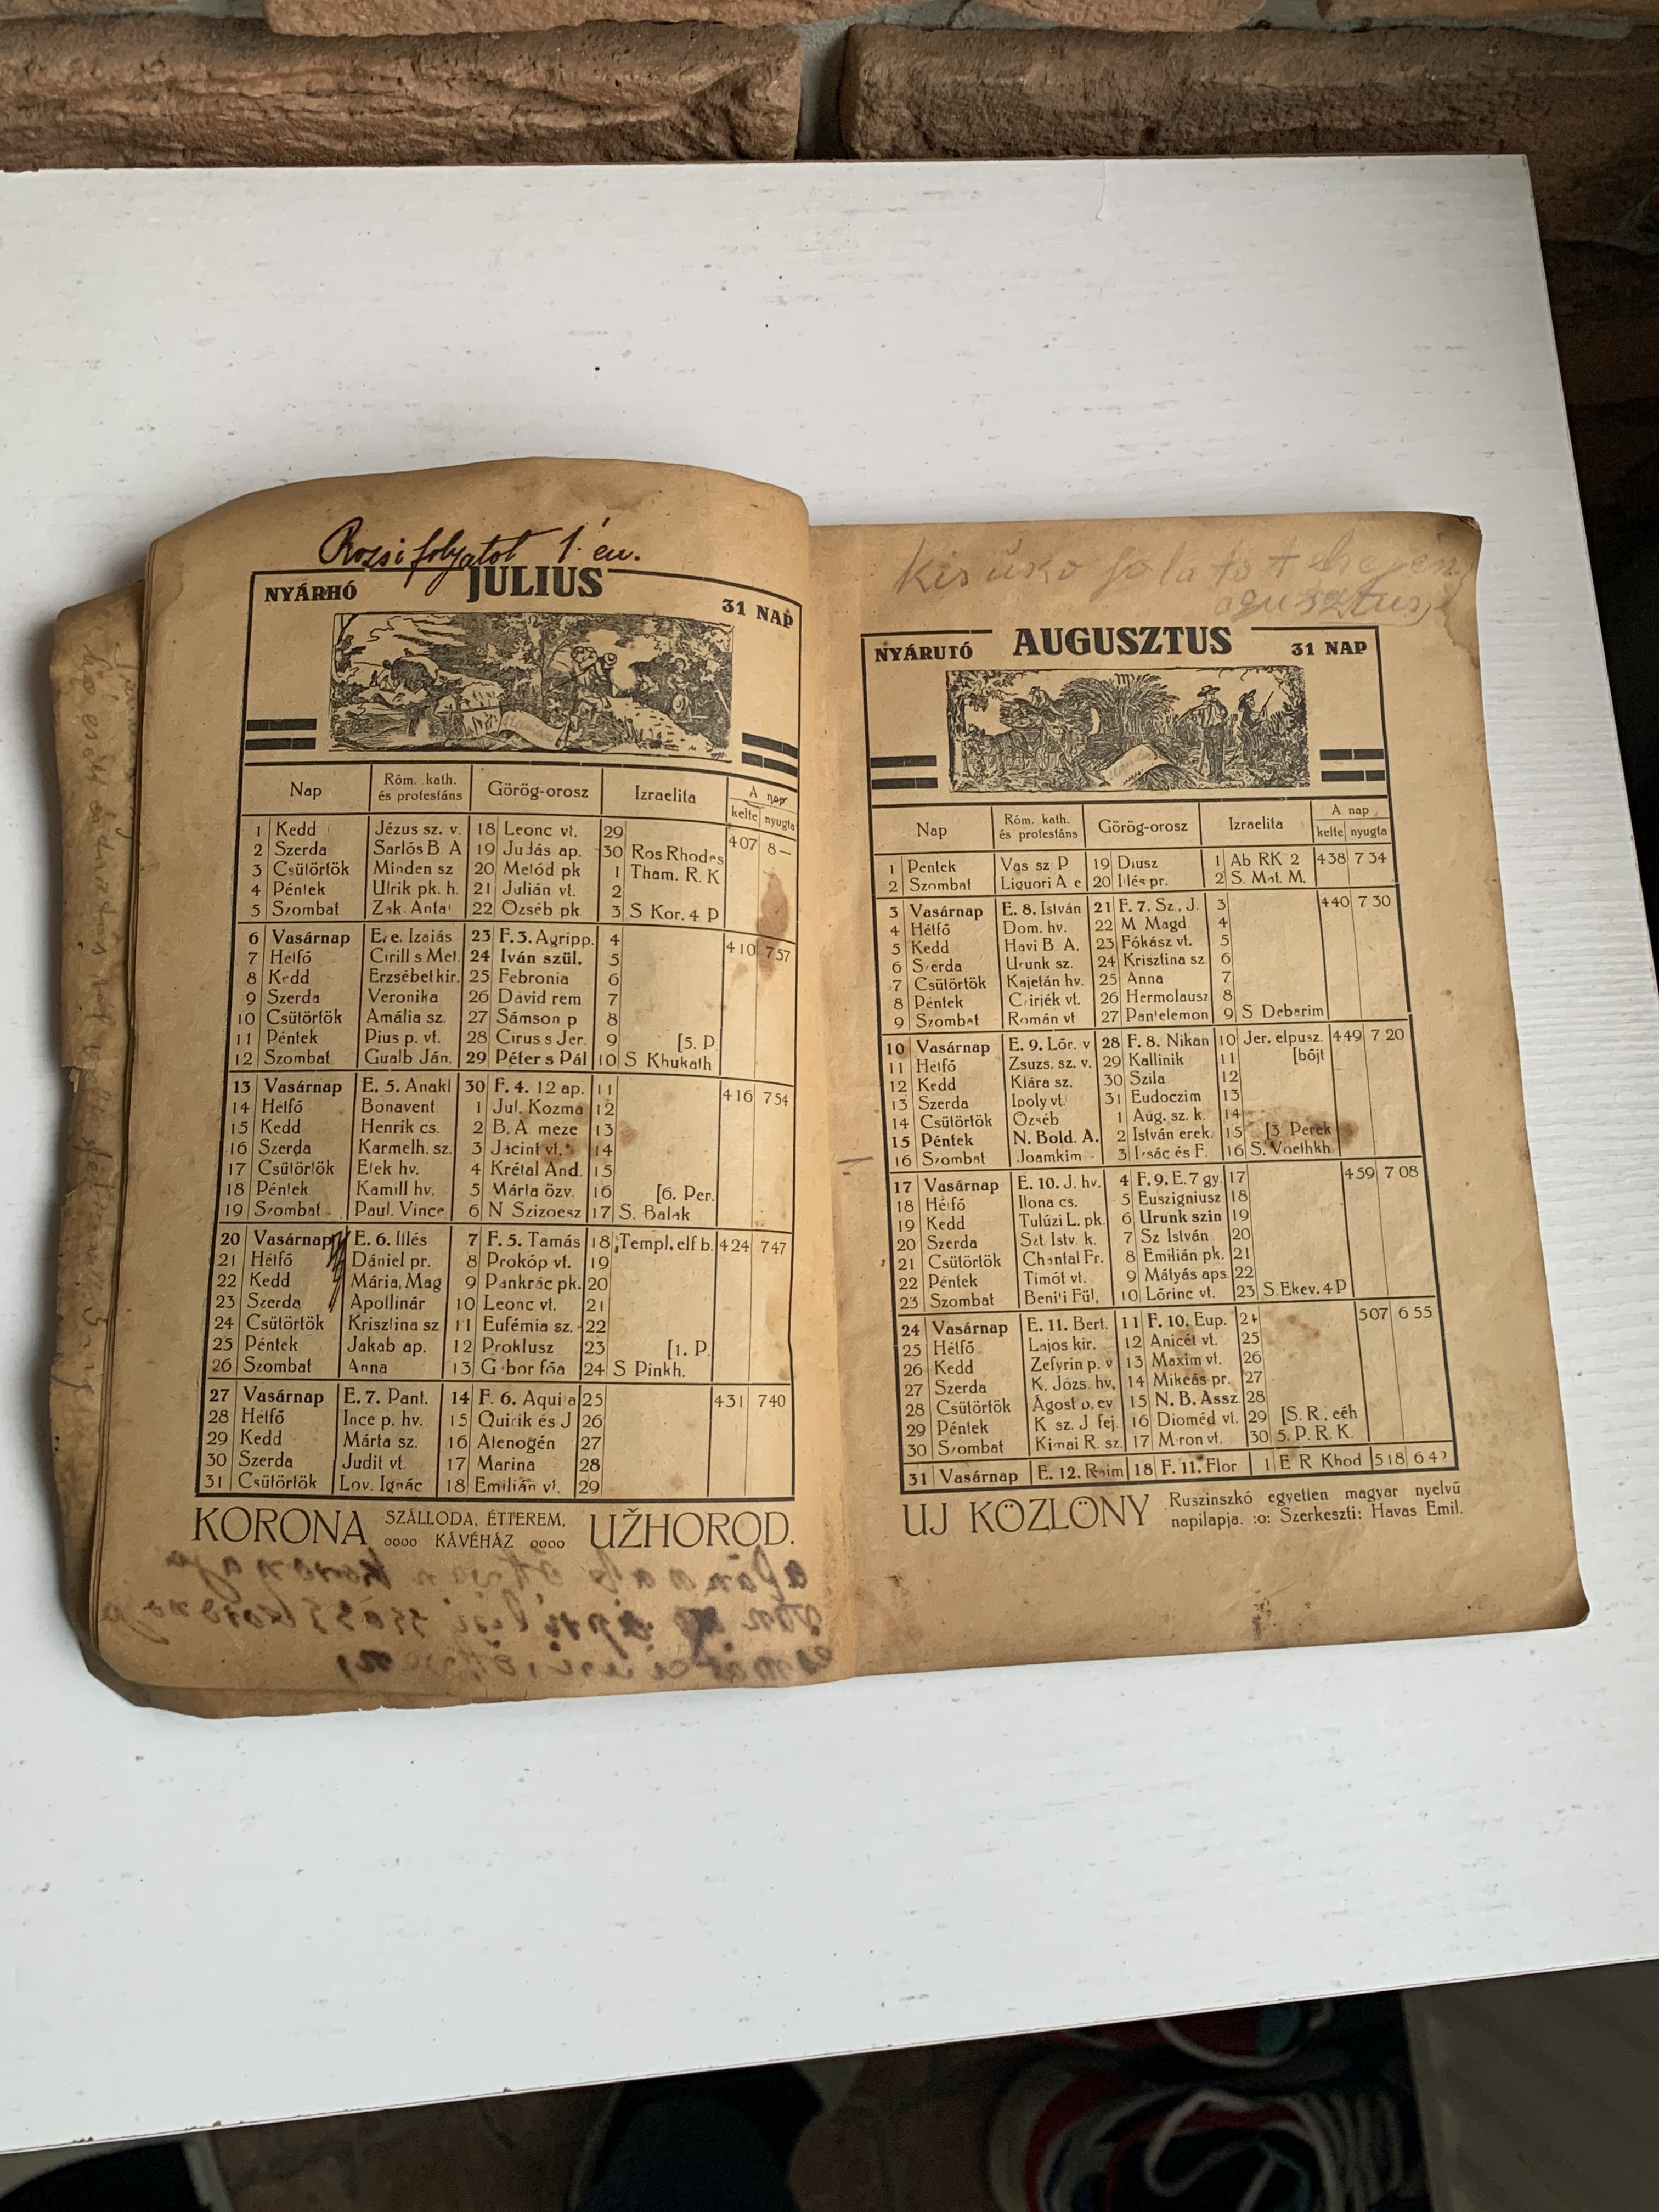 Rozsi folyatot 1. én.
NYÁRHÓ JÚLIUS 31 NAP
Nap Róm. kath. és protestáns Görög-orosz Izraelita A nap kelte nyugta
1 Kedd Jézus sz. v. 18 Leonc vt. 29 407 8—
2 Szerda Sarlós B. A 19 Judás ap. 30 Ros Rhodes
3 Csütörtök Minden sz 20 Metód pk 1 Tham. R. K
4 Péntek Ulrik pk. h. 21 Julián vt. 2
5 Szombat Zak. Antal 22 Özséb pk 3 S Kor. 4 P
6 Vasárnap E. e. Izaiás 23 F. 3. Agripp. 4 410 757
7 Hétfő Cirill s Met. 24 Iván szül. 5
8 Kedd Erzsébet kir. 25 Febronia 6
9 Szerda Veronika 26 Dávid rem 7
10 Csütörtök Amália sz. 27 Sámson p 8
11 Péntek Pius p. vt. 28 Cirus s Jer. 9 [5. P
12 Szombat Gualb Ján. 29 Péter s Pál 10 S Khukath
13 Vasárnap E. 5. Anakl 30 F. 4. 12 ap. 11 416 754
14 Hétfő Bonavent 1 Jul. Kozma 12
15 Kedd Henrik cs. 2 B. A meze 13
16 Szerda Karmelh. sz. 3 Jácint vt. 14
17 Csütörtök Elek hv. 4 Krétai And. 15
18 Péntek Kamill hv. 5 Márta özv. 16 [6. Per.
19 Szombat Paul. Vince 6 N Szizoesz 17 S. Balak
20 Vasárnap E. 6. Illés 7 F. 5. Tamás 18 Templ. elf b. 424 747
21 Hétfő Dániel pr. 8 Prokóp vt. 19
22 Kedd Mária, Mag 9 Pankrác pk. 20
23 Szerda Apollinár 10 Leonc vt. 21
24 Csütörtök Krisztina sz 11 Eufémia sz. 22
25 Péntek Jakab ap. 12 Proklusz 23 [1. P.
26 Szombat Anna 13 Gábor főa 24 S Pinkh.
27 Vasárnap E. 7. Pant. 14 F. 6. Aquila 25 431 740
28 Hétfő Ince p. hv. 15 Quirik és J 26
29 Kedd Márta sz. 16 Atenogén 27
30 Szerda Judit vt. 17 Marina 28
31 Csütörtök Loy. Ignác 18 Emilián vt. 29
KORONA SZÁLLODA, ÉTTEREM, KÁVÉHÁZ UŽHOROD.
agusztus
NYÁRUTÓ AUGUSZTUS 31 NAP
Nap Róm. kath. és protestáns Görög-orosz Izraelita A nap kelte nyugta
1 Péntek Vas sz P 19 Diusz 1 Ab RK 2 438 734
2 Szombat Liguori A e 20 Illés pr. 2 S. Mat. M.
3 Vasárnap E. 8. István 21 F. 7. Sz., J. 3 440 730
4 Hétfő Dom. hv. 22 M Magd 4
5 Kedd Havi B. A. 23 Fókász vt. 5
6 Szerda Urunk sz. 24 Krisztina sz 6
7 Csütörtök Kajetán hv. 25 Anna 7
8 Péntek Cirjék vt. 26 Hermolausz 8
9 Szombat Román vt 27 Pantelemon 9 S Debarim
10 Vasárnap E. 9. Lőr. v 28 F. 8. Nikan 10 Jer. elpusz. 449 720
11 Hétfő Zsuzs. sz. v. 29 Kallinik 11 [böjt
12 Kedd Klára sz. 30 Szila 12
13 Szerda Ipoly vt. 31 Eudoczim 13
14 Csütörtök Özséb 1 Aug. sz. k. 14
15 Péntek N. Bold. A. 2 István erek. 15 [3. Perek
16 Szombat Joamkim 3 Izsác és F. 16 S. Voethkh.
17 Vasárnap E. 10. J. hv. 4 F. 9. E. 7 gy. 17 459 708
18 Hétfő Ilona cs. 5 Euszigniusz 18
19 Kedd Tulúzi L. pk. 6 Urunk szin 19
20 Szerda Szt. Istv. k. 7 Sz István 20
21 Csütörtök Chantal Fr. 8 Emilián pk. 21
22 Péntek Timót vt. 9 Mátyás aps 22
23 Szombat Beniti Fül. 10 Lőrinc vt. 23 S. Ekev. 4 P
24 Vasárnap E. 11. Bert. 11 F. 10. Eup. 24 507 655
25 Hétfő Lajos kir. 12 Anicét vt. 25
26 Kedd Zefyrin p. v 13 Maxim vt. 26
27 Szerda K. Józs. hv. 14 Mikeás pr. 27
28 Csütörtök Ágost p. ev 15 N. B. Assz 28
29 Péntek K sz. J fej. 16 Dioméd vt. 29 [S. R. eéh
30 Szombat Limai R. sz. 17 Miron vt. 30 5. P. R. K.
31 Vasárnap E. 12. Raim 18 F. 11. Flor 1 E R Khod 518 642
UJ KÖZLÖNY Ruszinszkó egyetlen magyar nyelvű
napilapja. :o: Szerkeszti: Havas Emil.